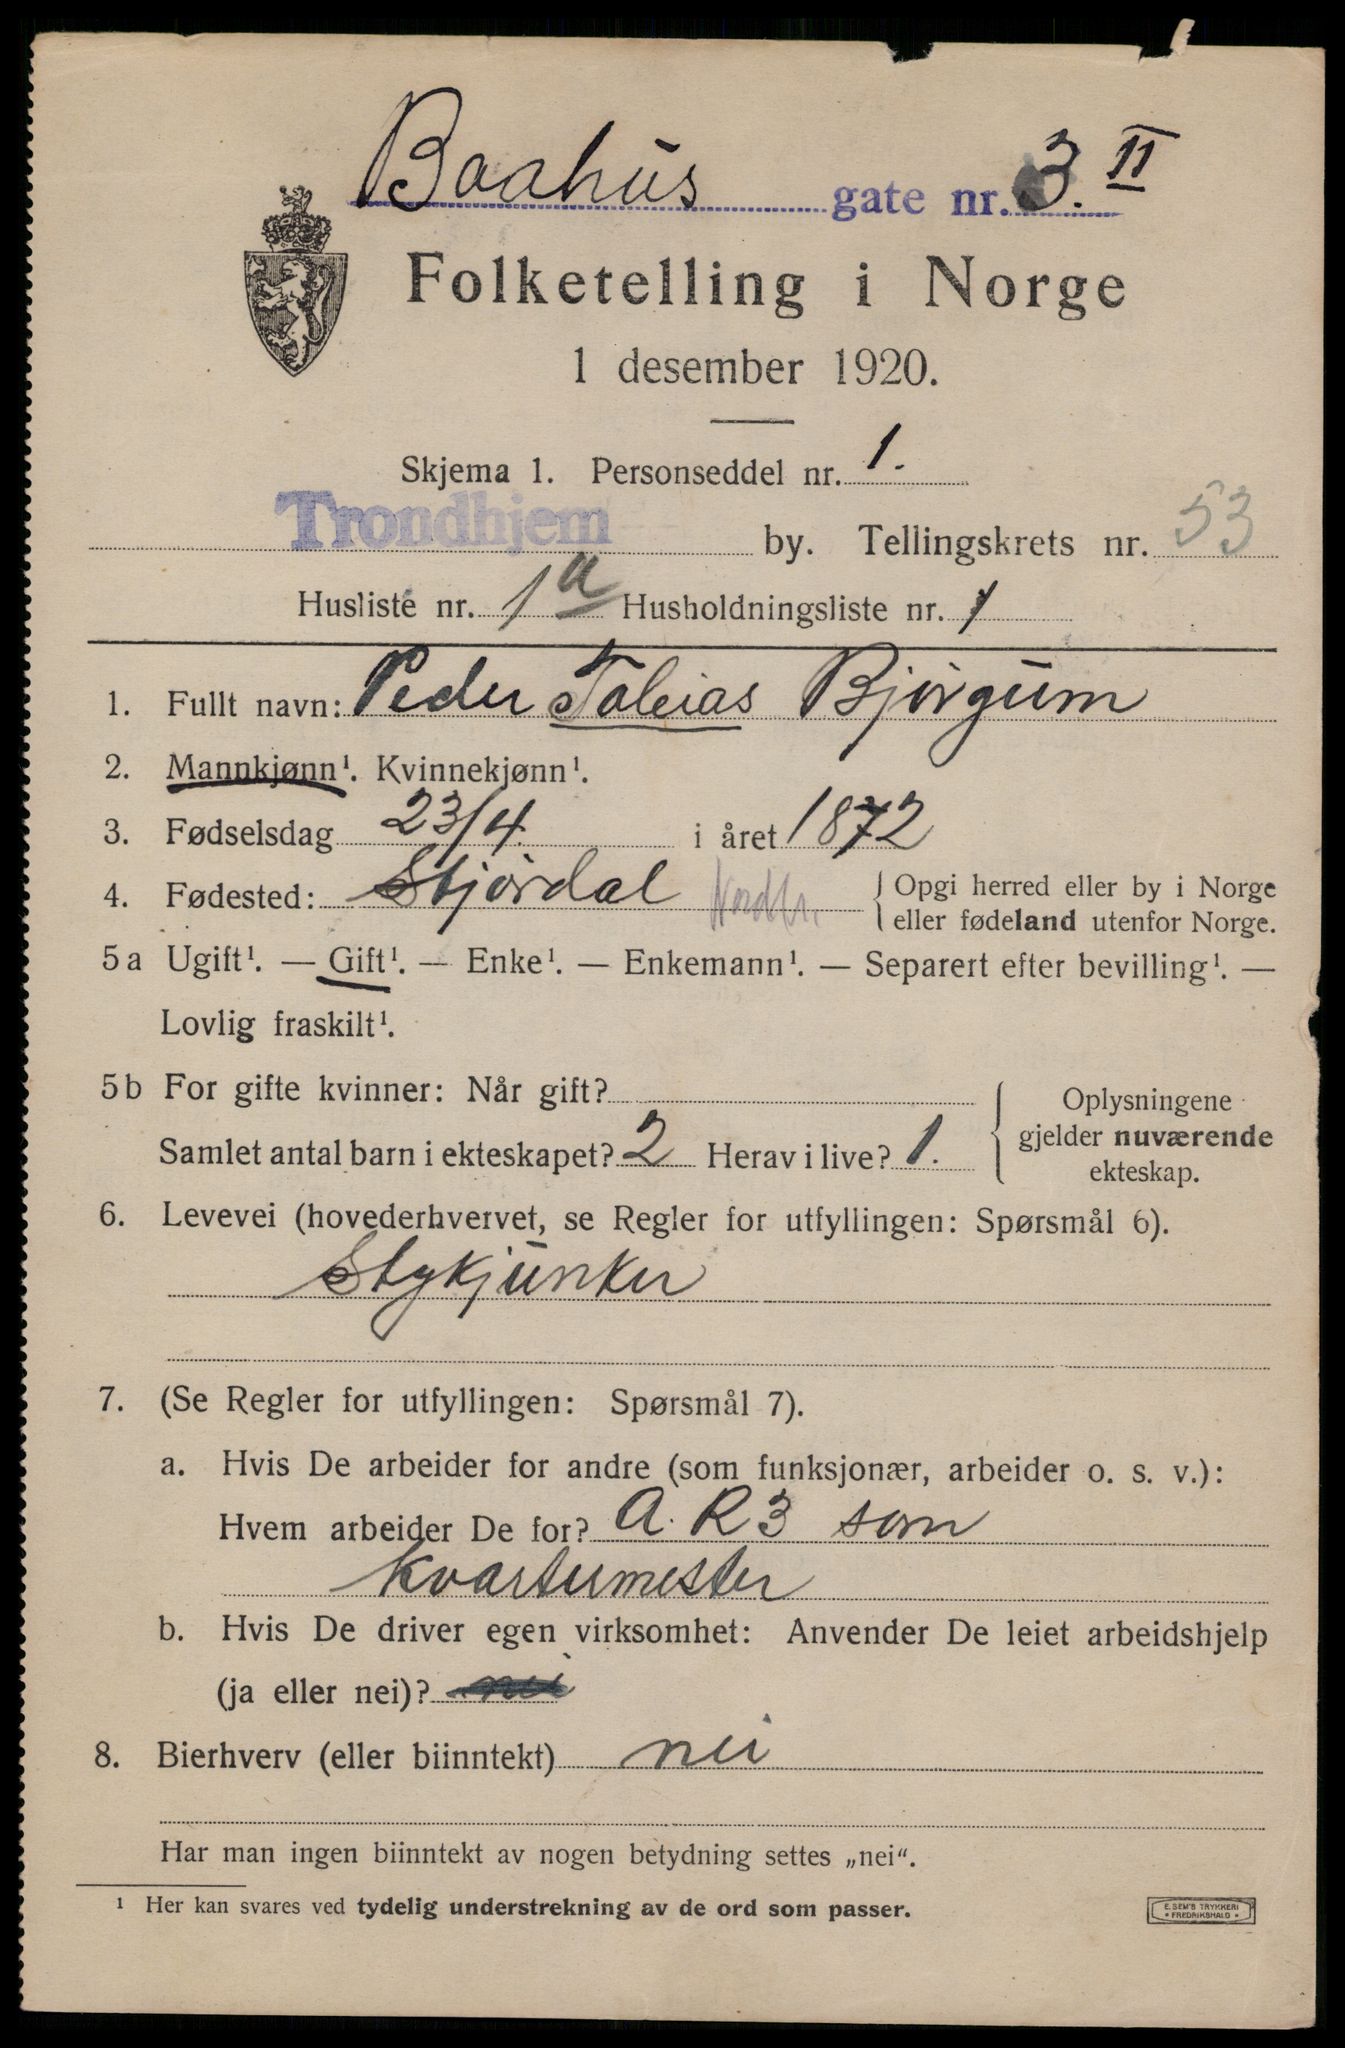 Baahus gate nr. 3. II
Folketelling i Norge
1 desember 1920.
Skjema 1. Personseddel nr. 1.
Trondhjem by. Tellingskrets nr. 53
Husliste nr. 1 a Husholdningsliste nr. 1
1. Fullt navn: Peder Tobias Bjørgum
2. Mannkjønn¹. Kvinnekjønn¹.
3. Fødselsdag 23/4. i året 1872
4. Fødested: Stjørdal Nordtr. { Opgi herred eller by i Norge
eller fødeland utenfor Norge.
5a Ugift¹. — Gift¹. — Enke¹. — Enkemann¹. — Separert efter bevilling¹. —
Lovlig fraskilt¹.
5b For gifte kvinner: Når gift?
Samlet antal barn i ekteskapet? 2 Herav i live? 1.
{ Oplysningene
gjelder nuværende
ekteskap.
6. Levevei (hovederhvervet, se Regler for utfyllingen: Spørsmål 6).
Stykjunker
7. (Se Regler for utfyllingen: Spørsmål 7).
a. Hvis De arbeider for andre (som funksjonær, arbeider o. s. v.):
Hvem arbeider De for? A. R 3 som
kvartermester
b. Hvis De driver egen virksomhet: Anvender De leiet arbeidshjelp
(ja eller nei)? nei
8. Bierhverv (eller biinntekt) nei
Har man ingen biinntekt av nogen betydning settes „nei“.
¹ Her kan svares ved tydelig understrekning av de ord som passer.
E. SEM'S TRYKKERI
• FREDRIKSHALD •